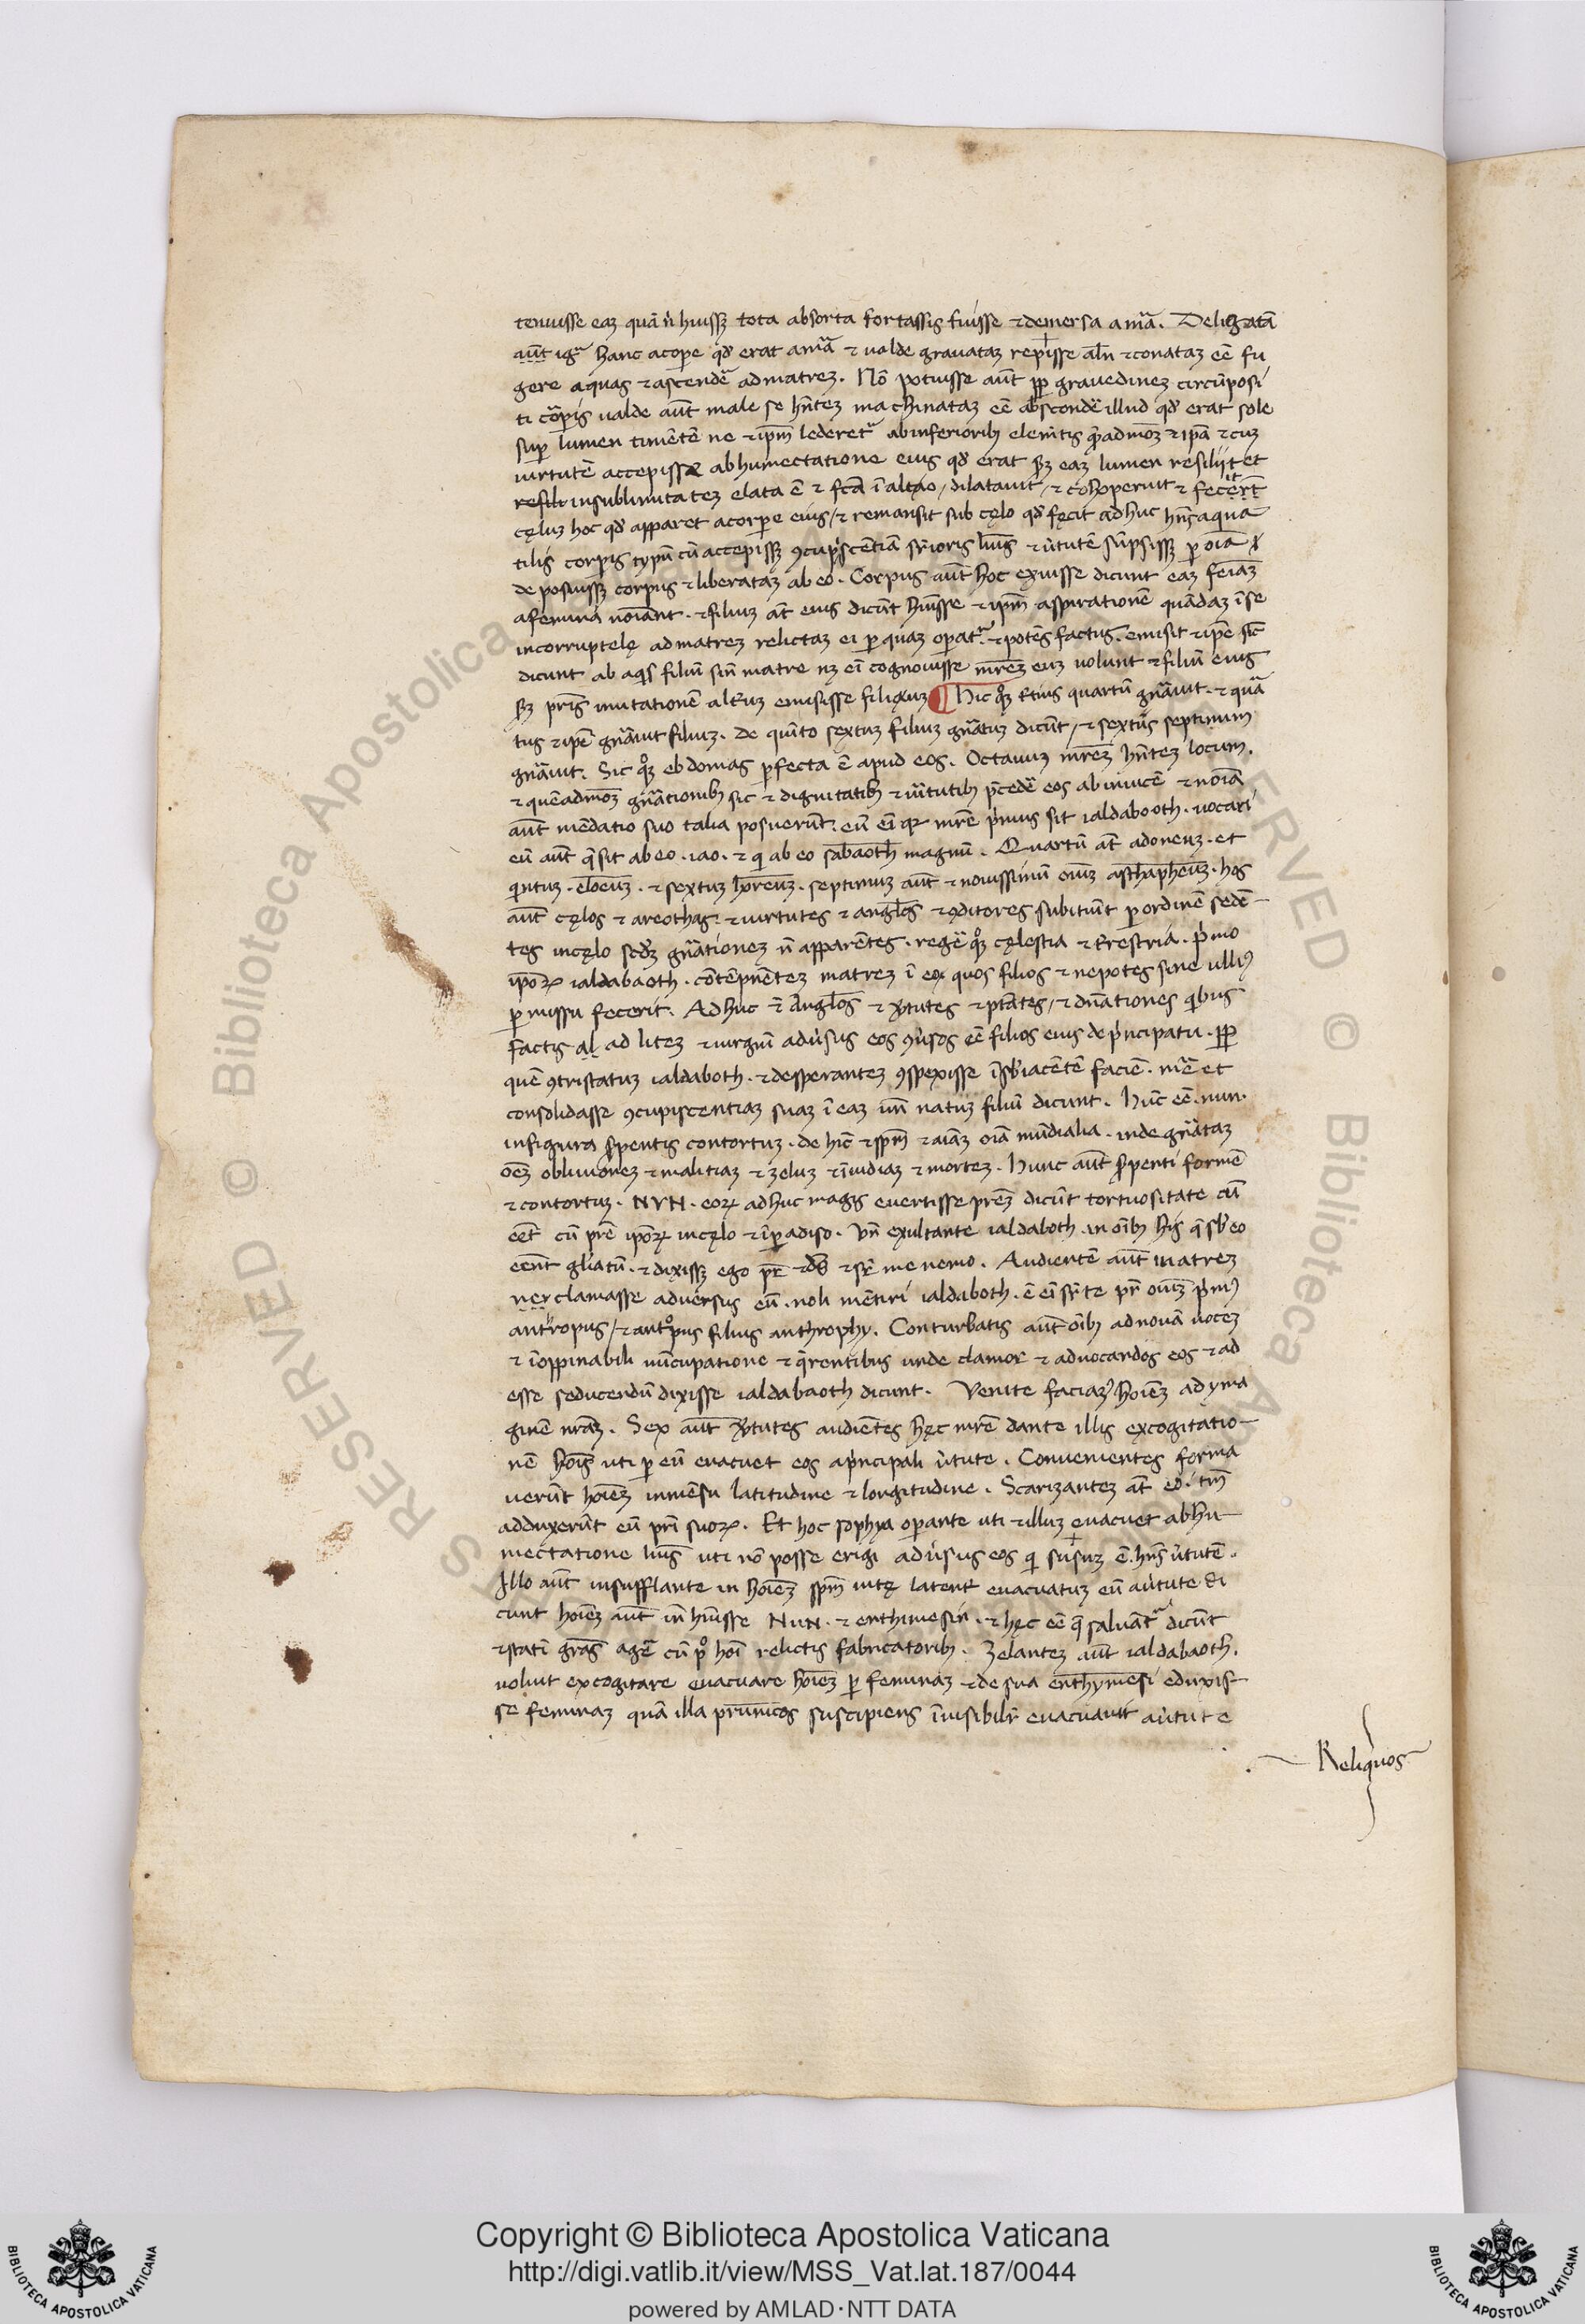 tenuisse eaʒ quā ñ hiuisʒ tota absorta fortassis fuisse ⁊ demersa a mã. Deligatā
aūt igr̃ hanc a corpe qđ erat a mã ⁊ ualde grauataʒ repisse alñ ⁊ conataʒ eē fu
gere aquas ⁊ ascendẽ ad matreʒ. Nō potuisse aūt ꝓp grauedineʒ circūposi
ti corpis ualde aūt male se hñteʒ machinataʒ eē abscondẽ illud qđ erat sole
sup lumen timētē ne ⁊ ipm̃ lederetr̃ ab inferiorib elemtis ⁊ ipā ⁊ cuʒ
uirtutē accepisse ab humectatione eius qđ erat eaʒ lumen resiliit et
in sublimitateʒ elata ē ⁊ fcā ī dilatauit / ⁊ cohoperuit ⁊ fecert̄
cęluʒ hoc qđ apparet a corpe eius / ⁊ remansit sub cęlo qđ fęcit adhuc hñs aqua
tilis corpis typū cū accepissʒ ꝯcupiscentiā luīs ⁊ ũtutē sūpsissʒ p oīa
deposuissʒ corpus ⁊ liberataʒ ab eo. Corpus aūt hoc exuisse dicunt eaʒ feīaʒ
a femina noīant. ⁊ filiuʒ aūt eius dicūt hiuisse ⁊ ipm̃ aspirationē quādaʒ ī se
incorruptelę ad matreʒ relictaʒ ei p quaʒ opatr̃. ⁊ potēs factus. emisit ⁊ ipe
dicunt ab aqs filiū siñ matre nʒ eī cognouisse mr̄eʒ euʒ uolunt ⁊ filiū eius
pr̄is imitationē emisisse filiuʒ ¶ Hic quartū gñauit. ⁊ quā
tus ⁊ ipe gñauit filiuʒ. De quīto sextuʒ filiuʒ gñatuʒ dicūt / ⁊ sextus septimum
gñauit. Sic ebdomas pfecta ē apud eos. Octauuʒ mr̄eʒ hñteʒ locum.
⁊ quēadmoʒ gñationib sic ⁊ dignitatib ⁊ uirtutib pcedẽ eos ab inuicē ⁊ noīa
aūt mēdatio suo talia posuerūt. eū eī mr̄e pmus sit ialdabooth. uocari
eū aūt sit ab eo. iao. ⁊ ab eo sabaoth magnū. Quartū aūt adoneuʒ. et
qintuʒ. eloeuʒ. ⁊ sextuʒ horeuʒ. septimuʒ aūt ⁊ nouissimū omiʒ asthapheuʒ. hos
aūt cęlos ⁊ areothas. ⁊ uirtutes ⁊ anglos ⁊ ꝯditores subitiūt p ordinē sedē
tes in cęlo gñationeʒ ñ apparētes. regẽ cęlestia ⁊ trestria. pimo
ipoꝝ ialdabaoth. cōtēpnēteʒ matreʒ ī eo quos filios ⁊ nepotes sine ullius
pmissu fecerit. Adhuc ⁊ anglos ⁊ ⁊ ptātes / ⁊ dñationes qibus
factis al ad liteʒ ⁊ iurgiū adũsus eos ꝯũsos eē filios eius de pincipatu. ꝓp
quē ꝯtristatuʒ ialdaboth. ⁊ desperanteʒ ꝯspexisse ī sbiacētē faciē. mr̄ē et
consolidasse ꝯcupiscentiaʒ suaʒ ī eaʒ uñ natuʒ filiū dicunt. Hūc eē. nun.
in figura spentis contortuʒ. de hīc ⁊ spm̃ ⁊ aīaʒ oīa mūdialia. inde gñataʒ
oēʒ obliuioneʒ ⁊ malitiaʒ ⁊ zeluʒ ⁊ īuidiaʒ ⁊ morteʒ. Hunc aūt spenti formē
⁊ contortuʒ. NVN. eoꝝ adhuc magis euertisse pr̄eʒ dicūt tortuositate cū
eēt cū pr̄e ipoꝝ in cęlo ⁊ ī padiso. Vñ exultante ialdaboth. in oībʒ his q̄ sb eo
eēnt gliātū. ⁊ dixissʒ ego pr̄ ⁊ ds ⁊ me nemo. Audientē aūt matreʒ
clamasse aduersus eū. noli mētiri ialdaboth. ē eī te pr̄ omiʒ pimus
antropus / ⁊ antopus filius anthrophy. Conturbatis aūt oībʒ ad nouā uoceʒ
⁊ īoppinabili nūcupatione ⁊ q̄rentibus unde clamor ⁊ aduocandos eos ⁊ ad
esse seducendū dixisse ialdabaoth dicunt. Venite faciaʒ hoīeʒ ad yma
ginē nr̄aʒ. Sex aūt audiētes hęc mr̄e dante illis excogitatio
nē hoīs uti p eū euacuet eos a pincipali ũtute. Conuenientes forma
uerūt hoīeʒ inmēsū latitudine ⁊ longitudine. Scarizanteʒ aūt eo. tm̄
adduxerūt eū pr̄i suoꝝ. Et hoc sophya opante uti ⁊ illuʒ euacuet ab hu
mectatione luīs uti nō posse erigi adũsus eos q sursuʒ ē. hñs ũtutē.
Illo aūt insufflante in hoīeʒ spm̃ uitę latent euacuatuʒ eū a ũtute di
cunt hoīeʒ aūt iñ hiuisse NuN. ⁊ enthimesiñ. ⁊ hęc eē q̄ saluātr̃ dicūt
⁊ statī gr̄as agẽ cū po hoī relictis fabricatoribʒ. Zelanteʒ aūt ialdabaoth.
uoluit excogitare euacuare hoīeʒ p feminaʒ ⁊ de sua enthymesi eduxis
se feminaʒ quā illa prunicos suscipiens īuisibilr̃ euacuauit a ũtute
Reliquos
Copyright © Biblioteca Apostolica Vaticana
http://digi.vatlib.it/view/MSS_Vat.lat.187/0044
powered by AMLAD·NTT DATA